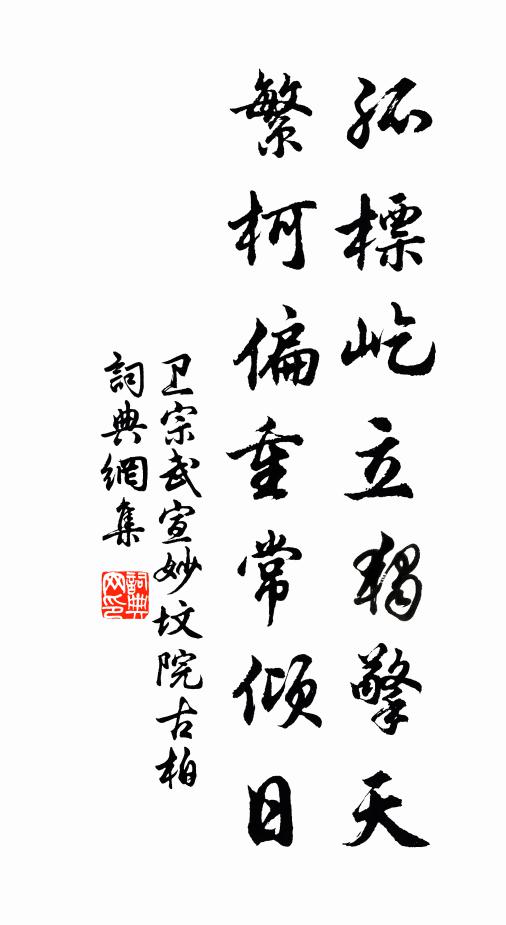 孤標屹立獨擎天
繁柯偏重常傾日
卫宗武宣妙坟院古柏
詞典網集
詞典网印